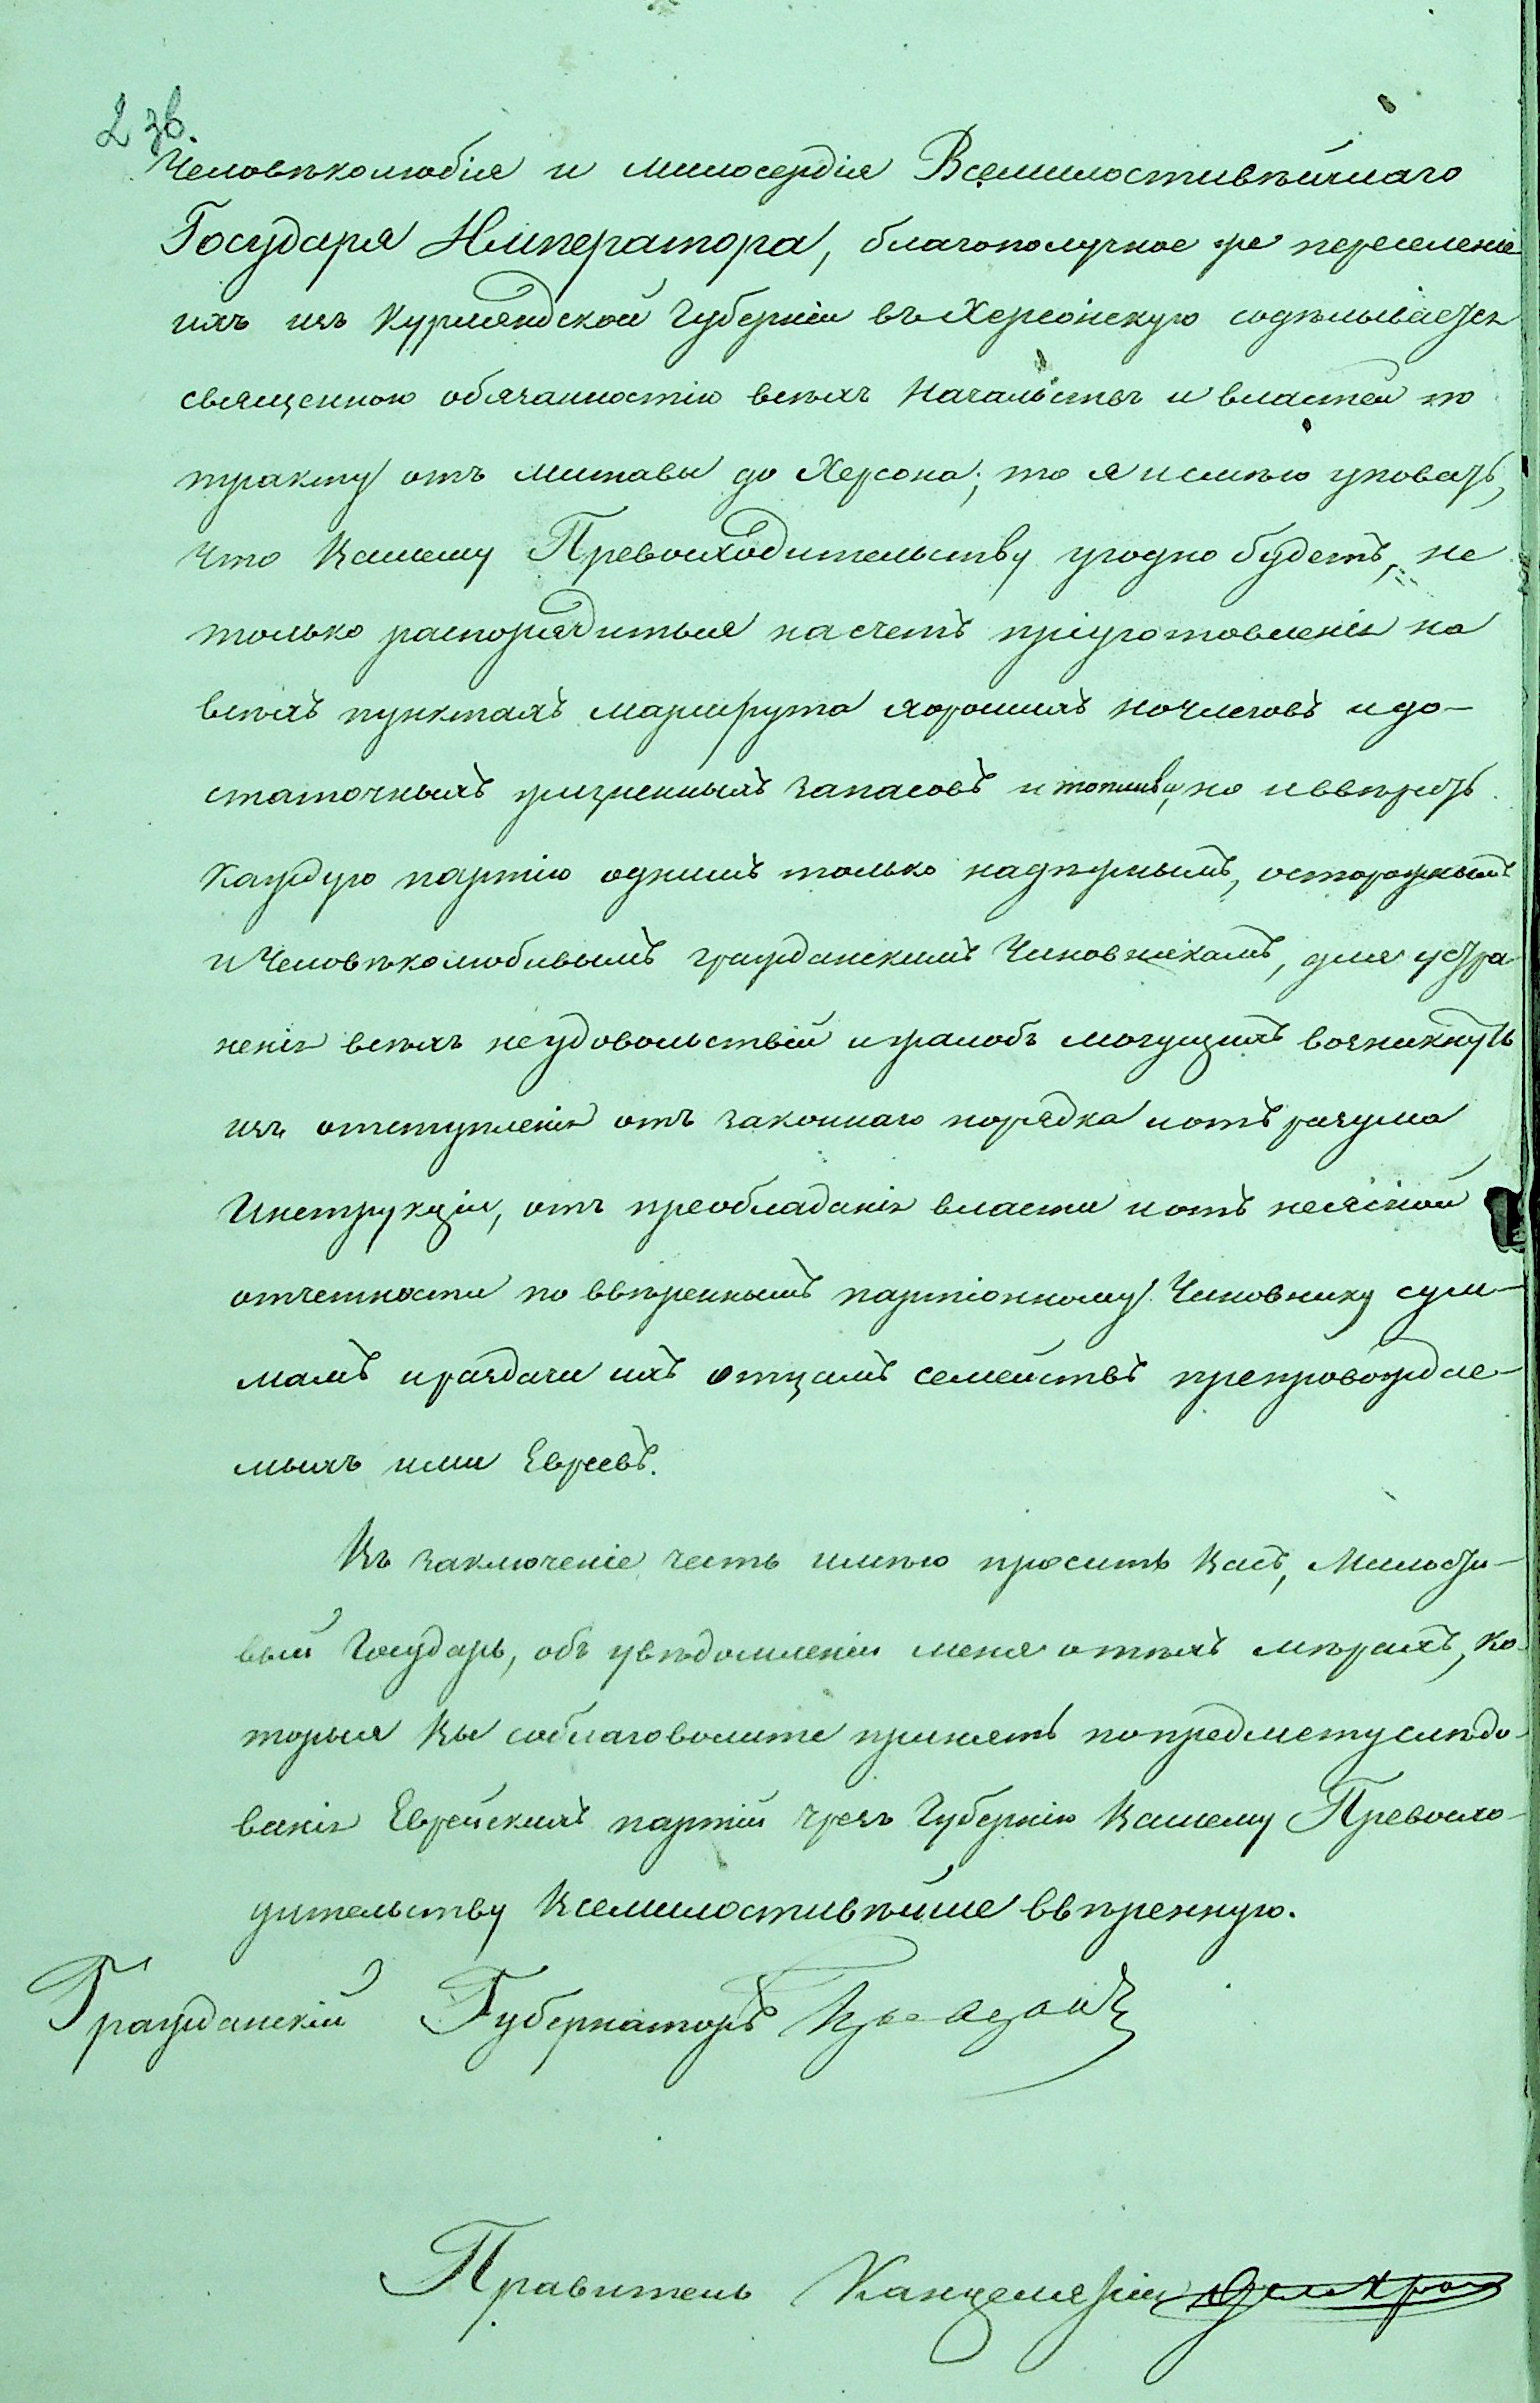 2 зв.
Человѣколюбія и милосердія Всемилостивѣйшаго
Государя Императора, благополучное же переселеніе
ихъ изъ Курляндской Губерніи въ Херсонскую содѣлывается
священною обязанностію всѣхъ Начальствъ и властей по
тракту отъ Митавы до Херсона; то я и смѣю уповать,
что Вашему Превосходительству угодно будетъ, не
только распорядиться на счетъ пріуготовленія на
всѣхъ пунктахъ маршрута хорошихъ ночлеговъ и до-
статочныхъ жизненныхъ запасовъ и топлива, но и ввѣрять
каждую партію однимъ только надежнымъ, осторожнымъ
и Человѣколюбивымъ гражданскимъ Чиновникамъ, для устра-
ненія всѣхъ неудовольствій и жалобъ могущихъ возникнуть
изъ отступленія отъ законнаго порядка и отъ разума
Инструкціи, отъ преобладанія власти и отъ неясной
отчетности по ввѣреннымъ партіонному Чиновнику сум-
мамъ и раздачи ихъ отцамъ семействъ препровождае-
мыхъ ими Евреевъ.
Въ заключеніе честь имѣю просить Васъ, Милости-
вый Государь, объ увѣдомленіи меня о тѣхъ мѣрахъ, ко-
торыя Вы соблаговолите принять по предмету слѣдо-
ванія Еврейскихъ партій чрезъ Губернію Вашему Превосхо-
дительству Всемилостивѣйше ввѣренную.
Гражданскій Губернаторъ
Правитель Канцеляріи